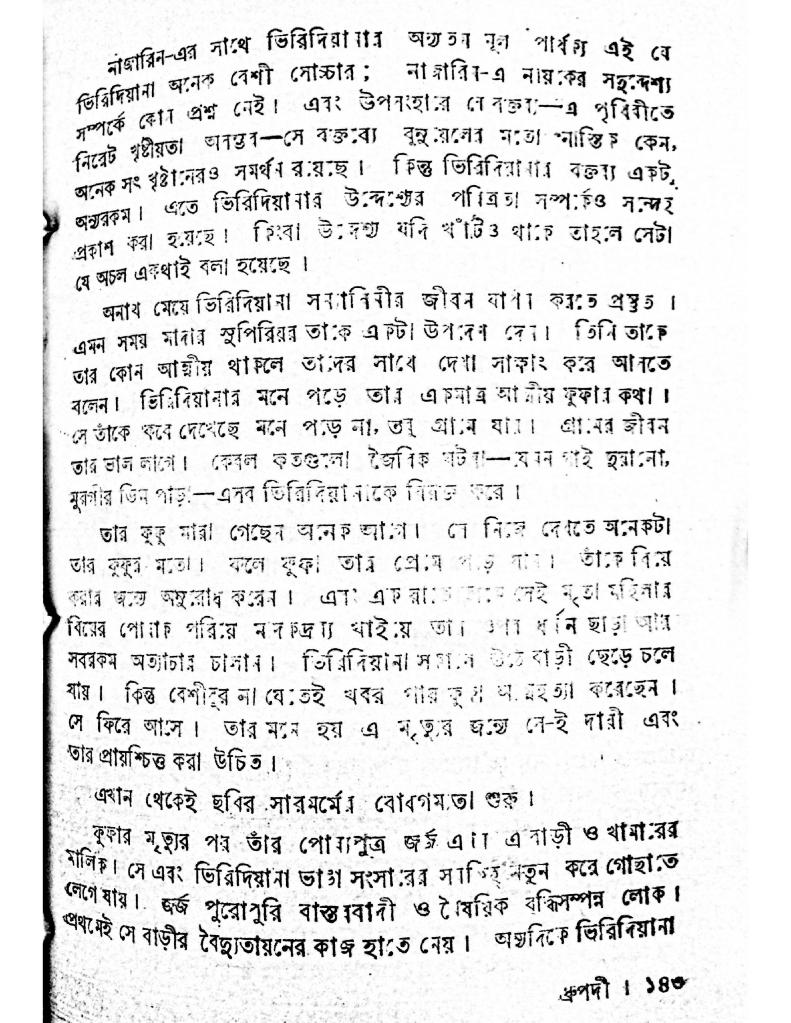 নাজারিন-এর সাথে ভিরিদিয়ানার অন্যতম মূল পার্থক্য এই যে
ভিরিদিয়ানা অনেক বেশী সোচ্চার; নাজারিন-এ নায়কের সদুদ্দেশ্য
সম্পর্কে কোন প্রশ্ন নেই। এবং উপসংহারে যে বক্তব্য—এ পৃথিবীতে
নিরেট খৃষ্টীয়তা অসম্ভব—সে বক্তব্যে বুনুয়েলের মতো নাস্তিক কেন,
অনেক সৎ খৃষ্টানেরও সমর্থন রয়েছে। কিন্তু ভিরিদিয়ানার বক্তব্য একটু
অন্যরকম। এতে ভিরিদিয়ানার উদ্দেশ্যের পবিত্রতা সম্পর্কেও সন্দেহ
প্রকাশ করা হয়েছে। কিংবা উদ্দেশ্য যদি খাঁটিও থাকে তাহলে সেটা
যে অচল একথাই বলা হয়েছে।
অনাথ মেয়ে ভিরিদিয়ানা সন্ন্যাসিনীর জীবন যাপন করতে প্রস্তুত।
এমন সময় মাদার সুপিরিয়র তাকে একটা উপদেশ দেন। তিনি তাকে
তার কোন আত্মীয় থাকলে তাদের সাথে দেখা সাক্ষাৎ করে আসতে
বলেন। ভিরিদিয়ানার মনে পড়ে তার একমাত্র আত্মীয় ফুফার কথা।
সে তাঁকে কবে দেখেছে মনে পড়ে না, তবু গ্রামে যায়। গ্রামের জীবন
তার ভাল লাগে। কেবল কতগুলো জৈবিক ঘটনা—যেমন গাই দুয়ানো,
মুরগীর ডিম পাড়া—এসব ভিরিদিয়ানাকে বিব্রত করে।
তার ফুফু মারা গেছেন অনেক আগে। সে নিজে দেখতে অনেকটা
তার ফুফুর মতো। ফলে ফুফা তার প্রেমে পড়ে যান। তাঁকে বিয়ে
করার জন্যে অনুরোধ করেন। এবং এক রাতে তাকে সেই মৃতা মহিলার
বিয়ের পোষাক পরিয়ে মাদকদ্রব্য খাইয়ে তার ওপর ধর্ষন ছাড়া আর
সবরকম অত্যাচার চালান। ভিরিদিয়ানা সকালে উঠে বাড়ী ছেড়ে চলে
যায়। কিন্তু বেশীদূর না যেতেই খবর পায় ফুফা আত্মহত্যা করেছেন।
সে ফিরে আসে। তার মনে হয় এ মৃত্যুর জন্যে সে-ই দায়ী এবং
তার প্রায়শ্চিত্ত করা উচিত।
এখান থেকেই ছবির সারমর্মের বোধগম্যতা শুরু।
ফুফার মৃত্যুর পর তাঁর পোষ্যপুত্র জর্জ এখন এ বাড়ী ও খামারের
মালিক। সে এবং ভিরিদিয়ানা ভাঙা সংসারের সবকিছু নতুন করে গোছাতে
লেগে যায়। জর্জ পুরোপুরি বাস্তববাদী ও বৈষয়িক বুদ্ধিসম্পন্ন লোক।
প্রথমেই সে বাড়ীর বৈদ্যুতায়নের কাজ হাতে নেয়। অন্যদিকে ভিরিদিয়ানা
ধ্রুপদী । ১৪৩